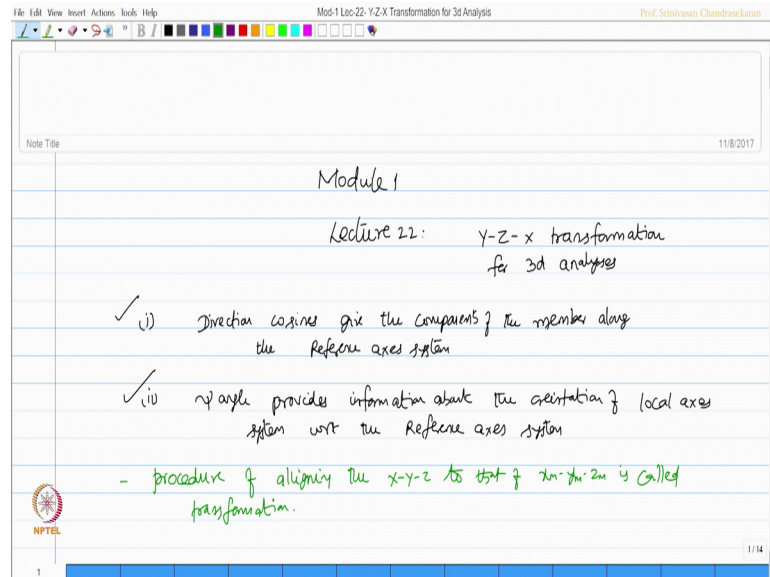 File Edit View Insert Actions Tools Help
Mod-1 Lec-22- Y-Z-X Transformation for 3d Analysis
Prof. Srinivasan Chandrasekaran
B I
Note Title
11/8/2017
Module 1
Lecture 22: Y-Z-X transformation
for 3d analyses
(i) Direction cosines give the components of the member along
the Reference axes system
(ii) ψ angle provides information about the orientation of local axes
system wrt the Reference axes system
- procedure of aligning the x-y-z to that of xm-ym-zm is called
transformation.
NPTEL
1/14
1